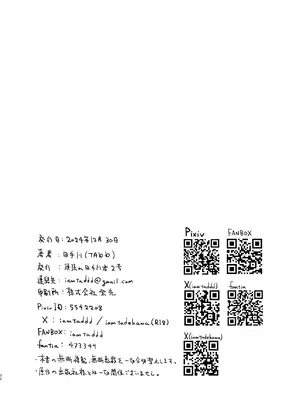 発行日：2024年12月30日
著者：日下行(TAbb)
発行：
連絡先：iamtaddd@gmail.com
印刷所：株式会社栄光
Pixiv ID：5542208
X：iamtaddd / iamtadekawa(R18)
FANBOX：iamtaddd
fantia：473349
・本書の無断複製、無断転載を一切禁止します。
・原作の出版社様とは一切関係ございません。
Pixiv
FANBOX
X(iamtaddd)
fantia
X(iamtadekawa)